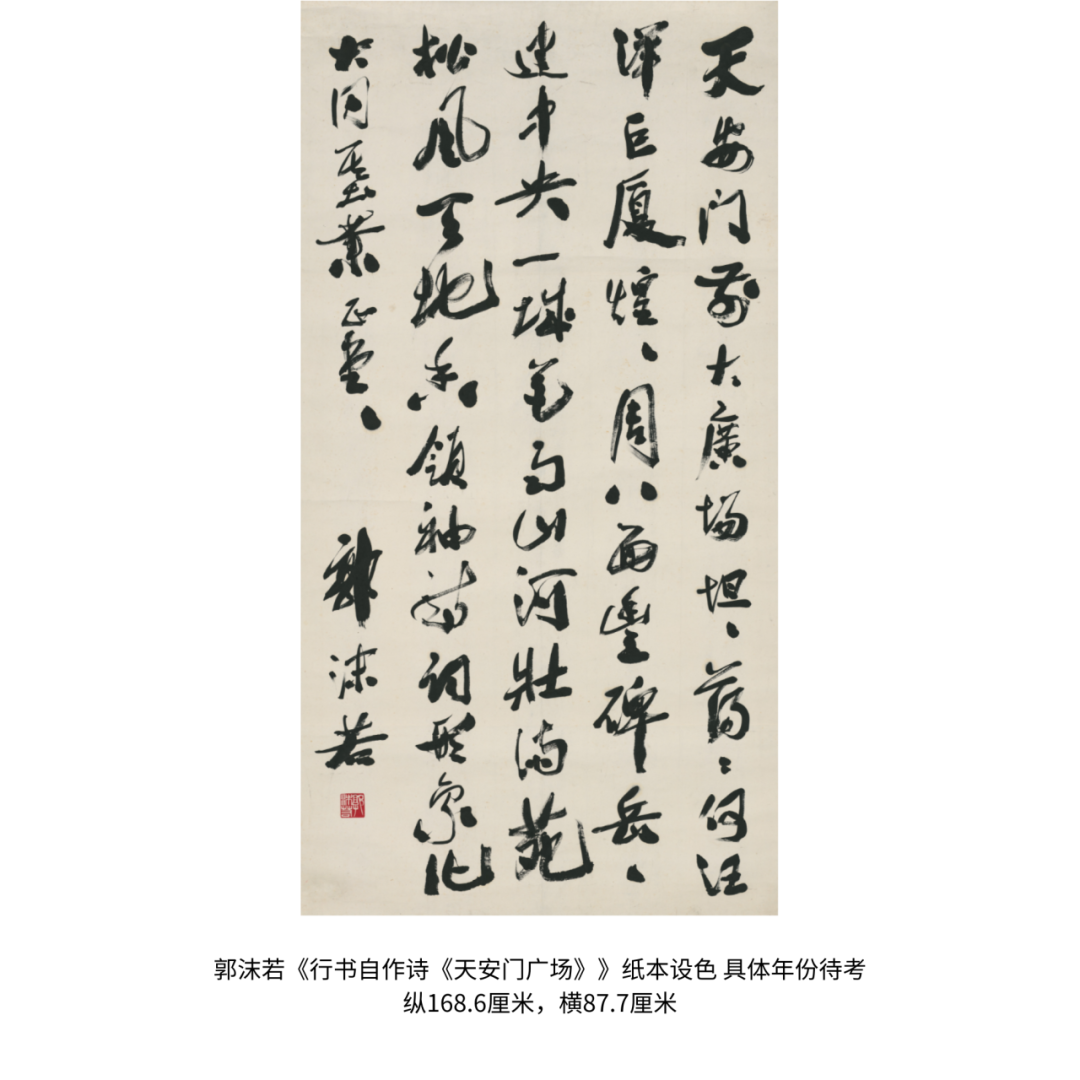 天安门前大廣场坦、蕩、何汪
洋巨厦煌、周八面豐碑岳、
建中央一城花雨山河壮满苑
松风天地香領袖诗词形象化
大同基業正堂、
郭沫若
郭沫若《行书自作诗《天安门广场》》纸本设色 具体年份待考
纵168.6厘米，横87.7厘米